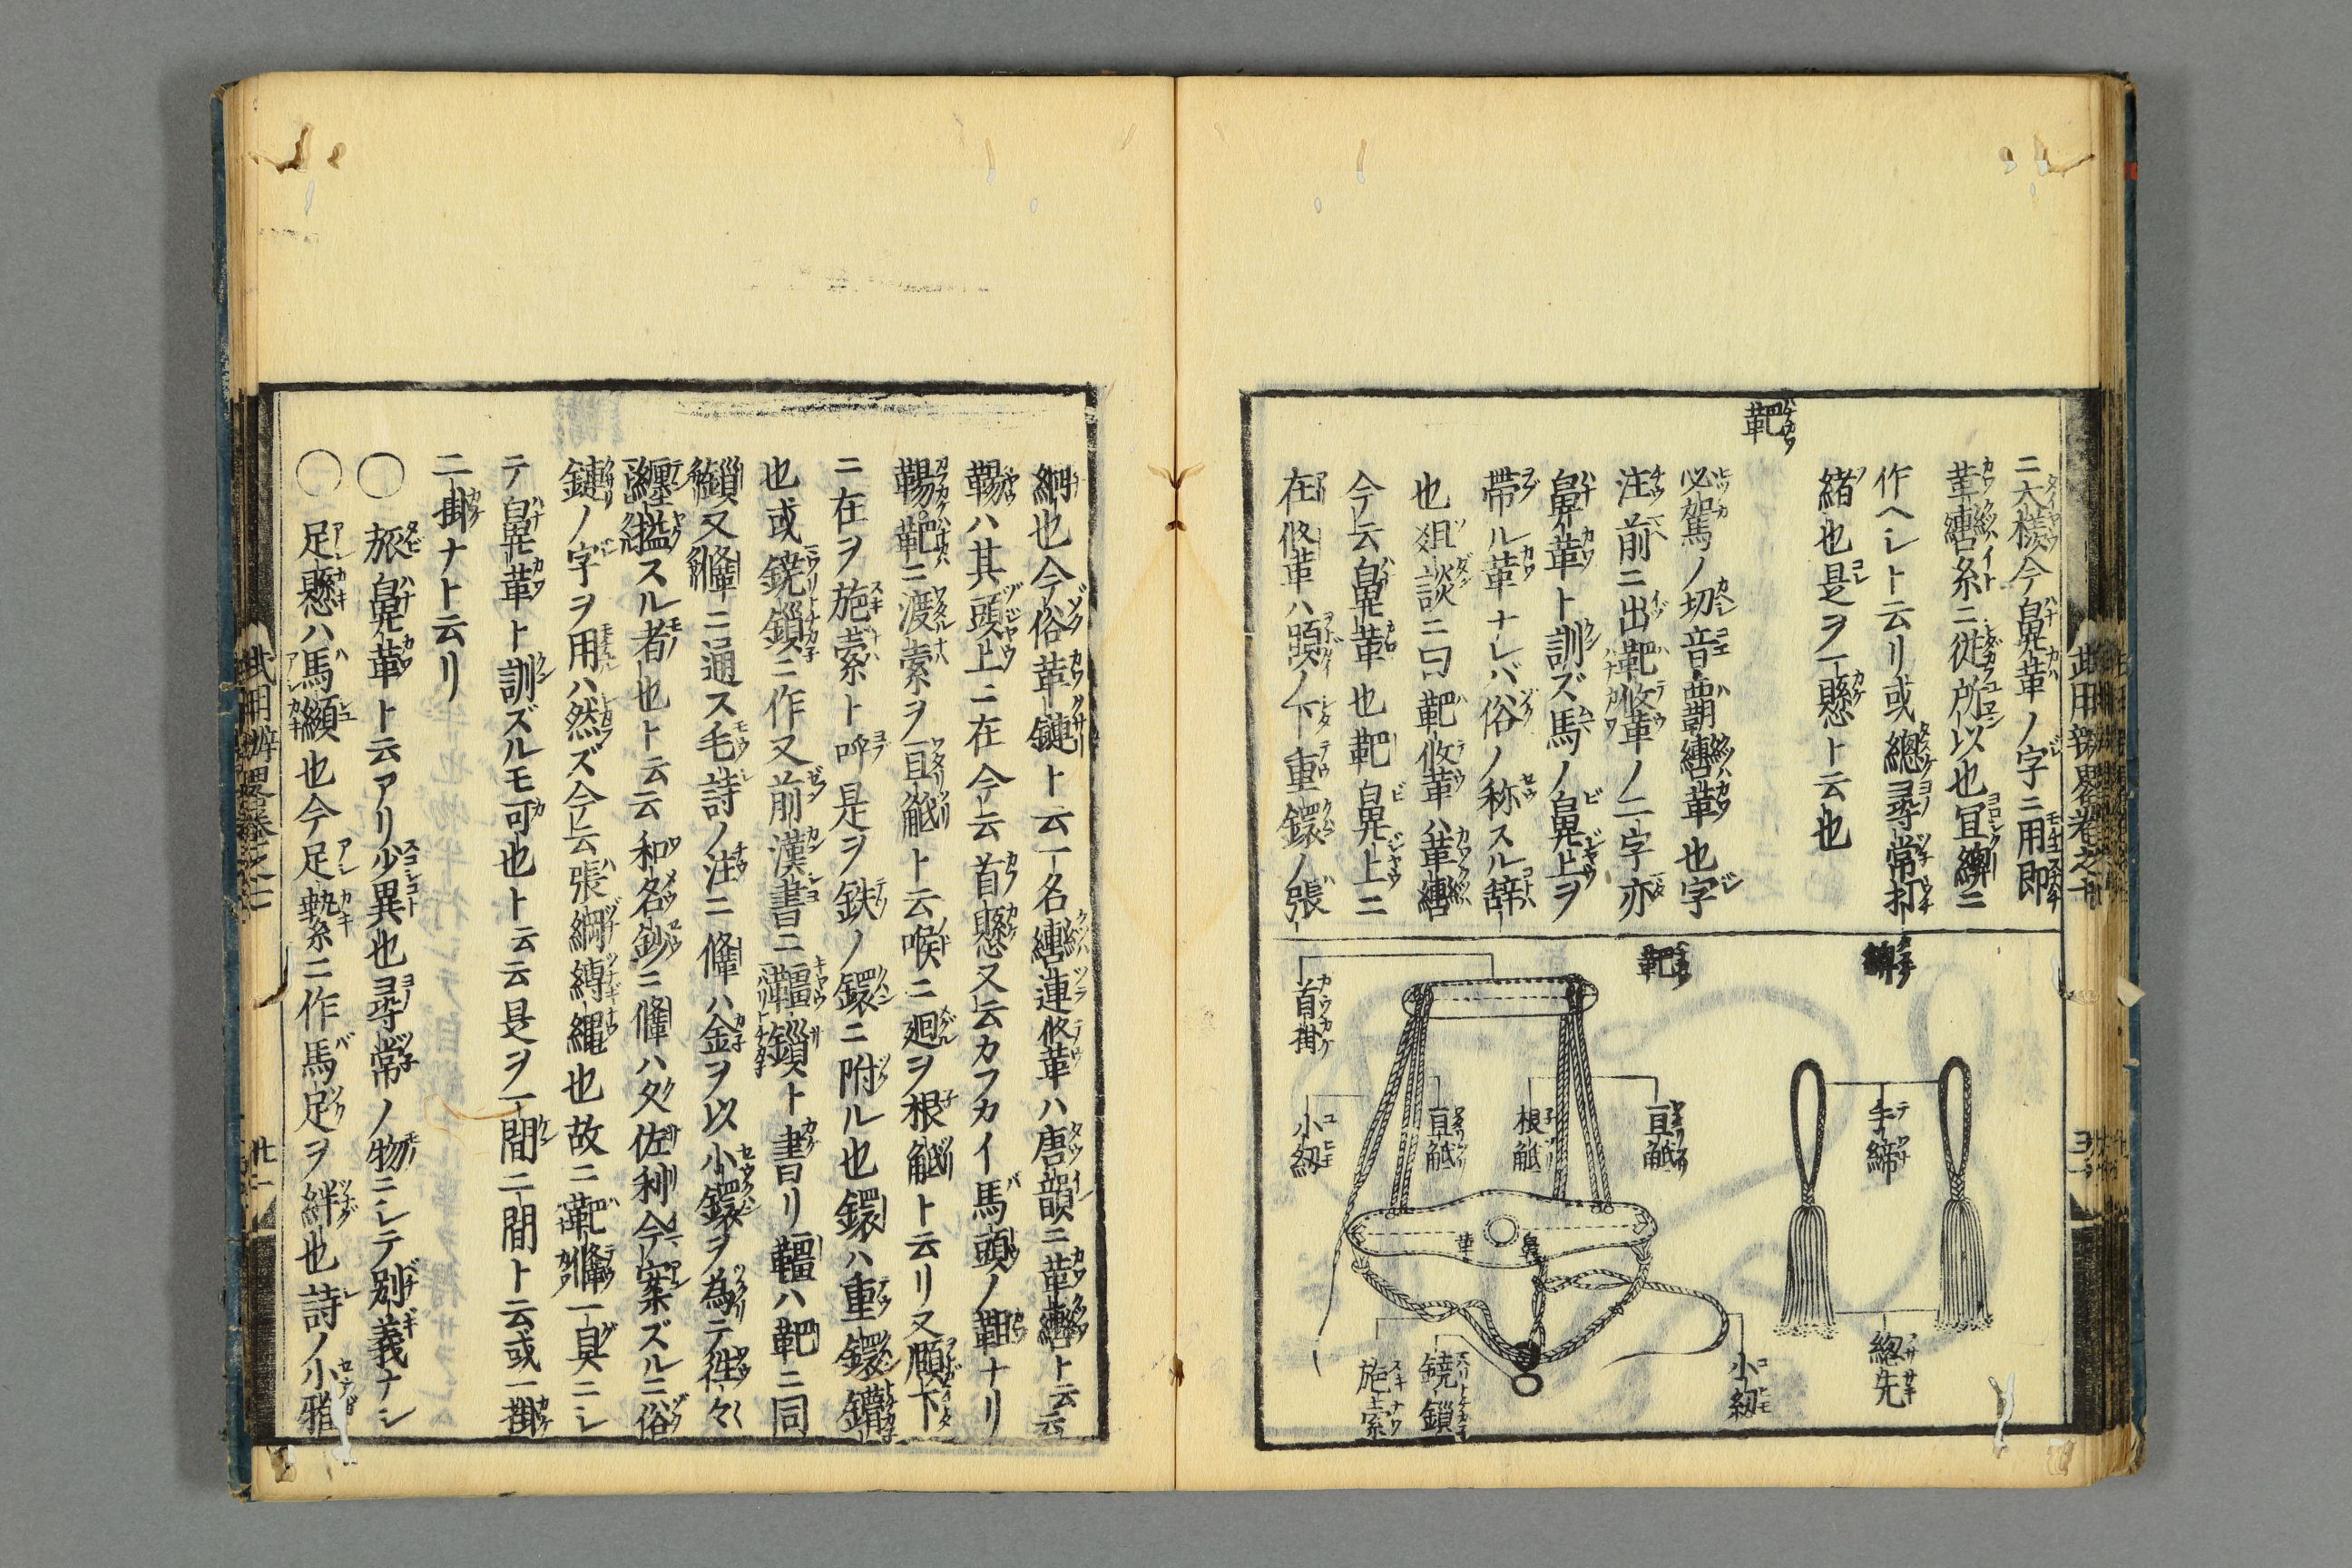 ニ大様今鼻革ノ字ニ用即
革轡糸ニ従所以也冝纐ニ
作ヘシト云リ或總尋常打
緒也是ヲ一懸ト云也
靶
必駕ノ切音覇轡革也字
注前ニ出靶鞗革ノ二字亦
鼻革ト訓ズ馬ノ鼻上ヲ
帯ル革ナレバ俗ノ称スル辞
也爼談ニ曰靶鞗革ハ革轡
今云鼻革也靶鼻上ニ
在鞗革ハ頤ノ下重鐶ノ張
手締
総先
靶
首掛
小紉
亘䚦
根䚦
亘䚦
鼻革
小紉
鐃鎖
施索
綱也今俗革鏈ト云一名轡連鞗革ハ唐韻ニ革轡ト云云
鞨ハ其頭上ニ在今云首懸又云カフカイ馬頭ノ靼ナリ
鞨靶ニ渡索ヲ亘䚦ト云喉ニ廻ヲ根䚦ト云リ又頤下
ニ在ヲ施索ト呼是ヲ鉄ノ鐶ニ附ル也鐶ハ重鐶鑵
也或鐃鎖ニ作又前漢書ニ韁鎖ト書リ韁ハ靶ニ同
又鞗ニ通ス毛詩ノ注ニ鞗ハ金ヲ以小鐶ヲ為テ徃々
纏搤スル者也ト云云和名鈔ニ鞗ハ久佐利今案ズルニ俗
鏈ノ字ヲ用ハ然ズ今云張綱縛縄也故ニ靶鞗一具ニシ
テ鼻革ト訓ズルモ可也ト云云是ヲ一間二間ト云或一掛
二掛ナト云リ
〇 旅鼻革ト云アリ少異也尋常ノ物ニシテ別義ナシ
〇 足懸ハ馬纐也今足縶ニ作馬足ヲ絆也詩ノ小雅
武用辨畧巻之七
廿一